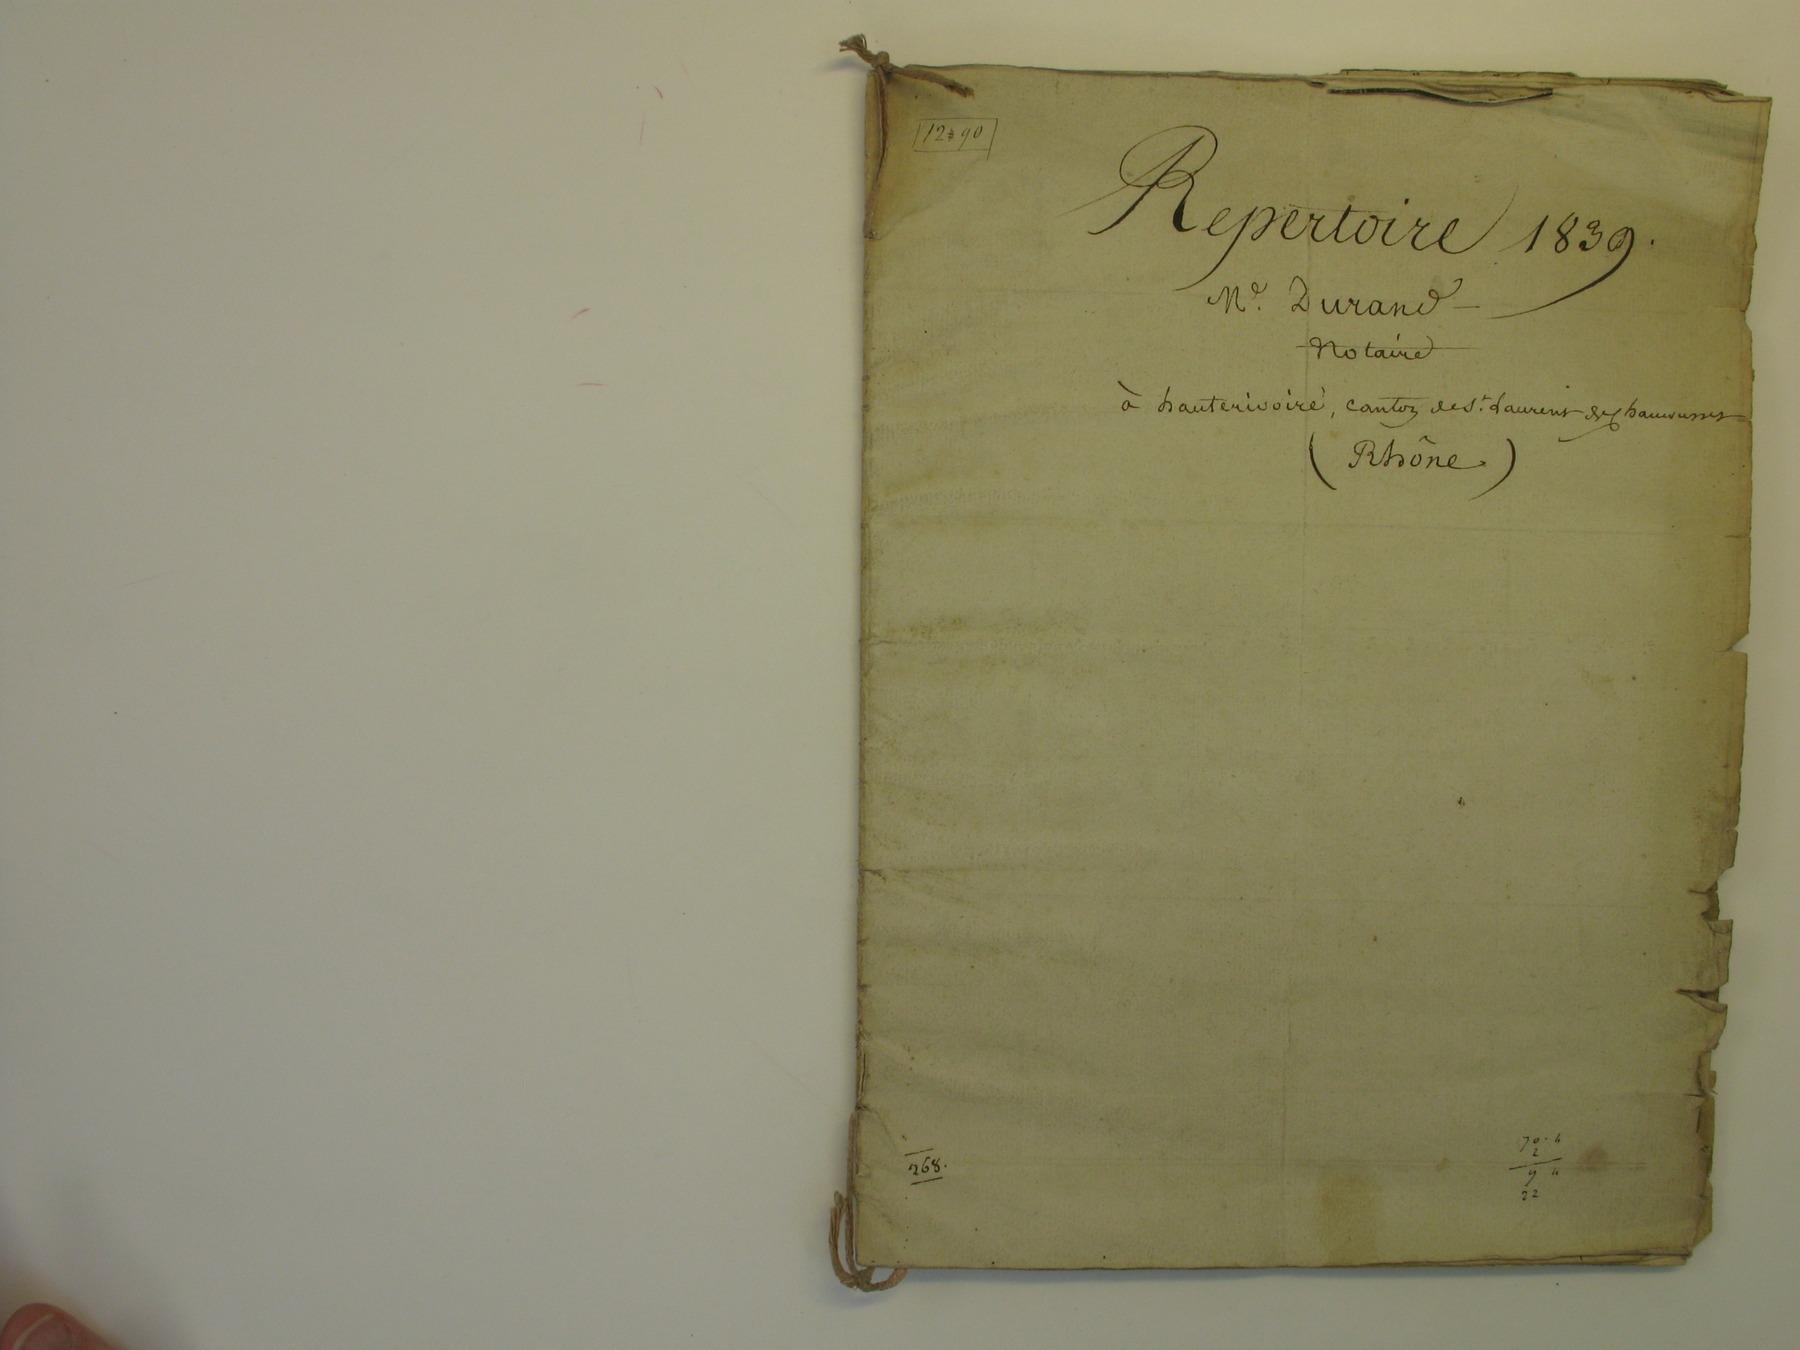 12 90
Repertoire 1839.
Me. Durand
Notaire
à hauterivoire, canton de St. Laurent de Chamousset
(Rhône)
268.
70 "
2
9 "
22